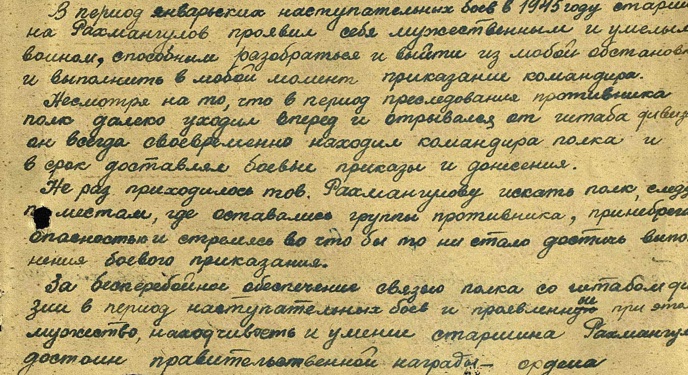 В период январьских наступательных боев в 1945 году старши
на Рахмангулов проявил себя мужественным и умелым
воином, способным разобраться и выйти из любой обстанов
и выполнить в любой момент приказание командира.
Несмотря на то, что в период преследования противника
полк далеко уходил вперед и отрывался от штаба дивиз
он всегда своевременно находил командира полка и
в срок доставлял боевые приказы и донесения.
Не раз приходилось тов. Рахмангулову искать полк, следу
по местам, где оставались группы противника, принебрег
опасностью и стремясь во что бы то ни стало достичь выпо
нения боевого приказания.
За бесперебойное обеспечение связью полка со штабом ди
зии в период наступательных боев и проявленную при этом
мужество, находчивость и умение старшина Рахмангу
достоин правительственной награды – ордена